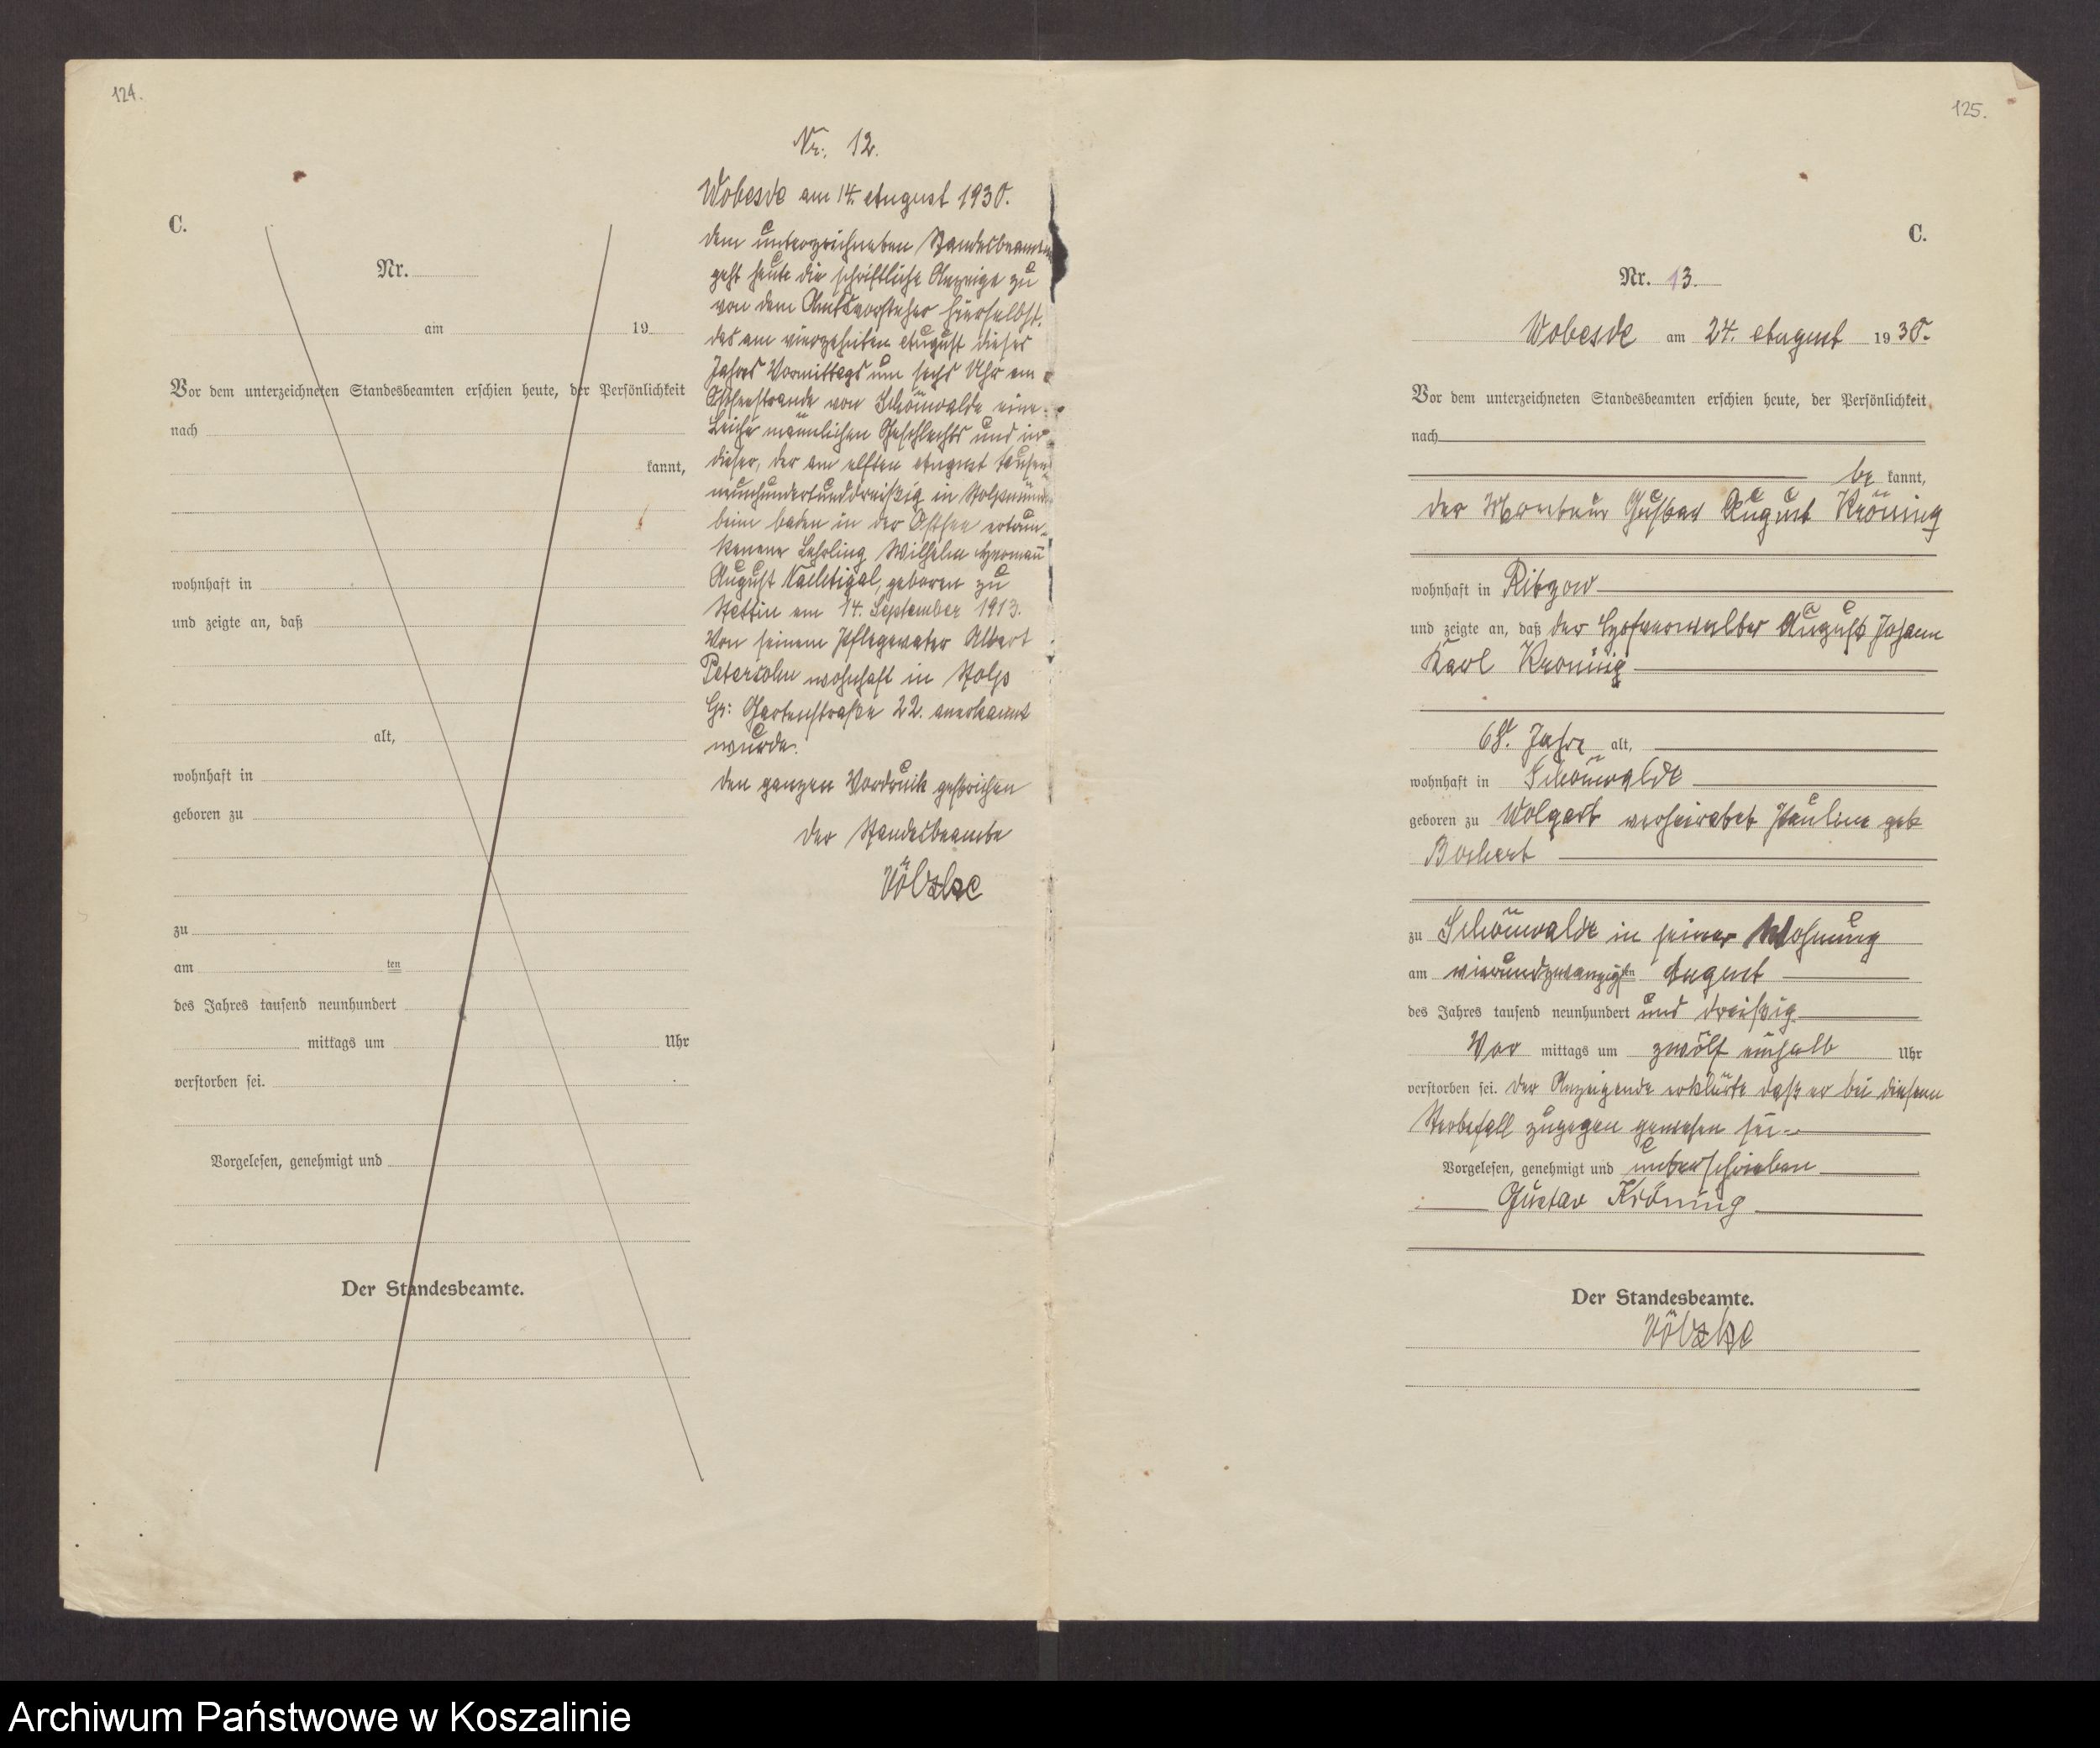 124.
C.
Nr.
am 19
Vor dem unterzeichneten Standesbeamten erschien heute, der Persönlichkeit
nach
kannt,
wohnhaft in
und zeigte an, daß
alt,
wohnhaft in
geboren zu
zu
am ten
des Jahres tausend neunhundert
mittags um Uhr
verstorben sei.
Vorgelesen, genehmigt und
Der Standesbeamte.
Nr. 12.
Wobesde am 14. August 1930.
Dem unterzeichneten Standesbeamten
geht heute die schriftliche Anzeige zu
von dem Amtsvorsteher hierselbst,
das am vierzehnten August dieses
Jahres Vormittags um sechs Uhr am
Ostseestrande von Schönwalde eine
Leiche männlichen Geschlechts und in
dieser, der am elften August tausend
neunhundertunddreißig in Stolpmünde
beim baden in der Ostsee ertrun-
kenene Lehrling Wilhelm Hermann
August, geboren zu
Stettin am 14. September 1913.
Von seinem Pflegevater Albert
Petersohn wohnhaft in Stolp
Gr: Gartenstraße 22. anerkannt
wurde.
Den ganzen Vordruck gestrichen
Der Standesbeamte
Völzke
125.
C.
Nr. 13.
Wobesde am 24. August 1930.
Vor dem unterzeichneten Standesbeamten erschien heute, der Persönlichkeit
nach
be kannt,
der Monteur Gustav August Kröning
wohnhaft in Ritzow
und zeigte an, daß der Hofverwalter August Johann
Karl Kröning
68. Jahre alt,
wohnhaft in Schönwalde
geboren zu Wolgast verheiratet Pauline geb
zu Schönwalde in seiner Wohnung
am vierundzwanzigsten August
des Jahres tausend neunhundert und dreißig
Vor mittags um zwölf einhalb Uhr
verstorben sei. Der Anzeigende erklärte daß er bei diesem
Sterbefall zugegen gewesen sei.
Vorgelesen, genehmigt und unterschrieben
Gustav Kröning
Der Standesbeamte.
Völzke
Archiwum Państwowe w Koszalinie